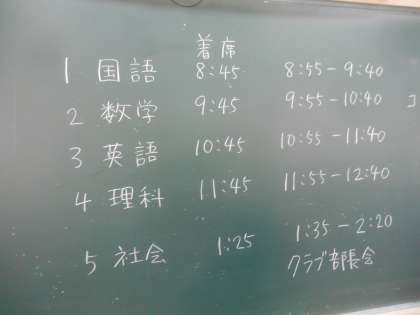 着席
1 国語 8:45 8:55-9:40
2 数学 9:45 9:55-10:40
3 英語 10:45 10:55-11:40
4 理科 11:45 11:55-12:40
5 社会 1:25 1:35-2:20
クラブ部長会